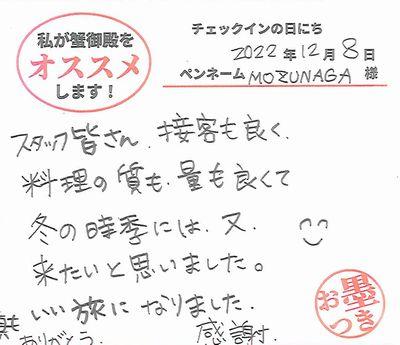 私が蟹御殿を
オススメ
します！
チェックインの日にち
2022年12月8日
ペンネーム MOZUNAGA 様
スタッフ皆さん、接客も良く、
料理の質も、量も良くて
冬の時季には、又、
来たいと思いました。
いい旅になりました。
ありがとう、感謝。
お墨つき